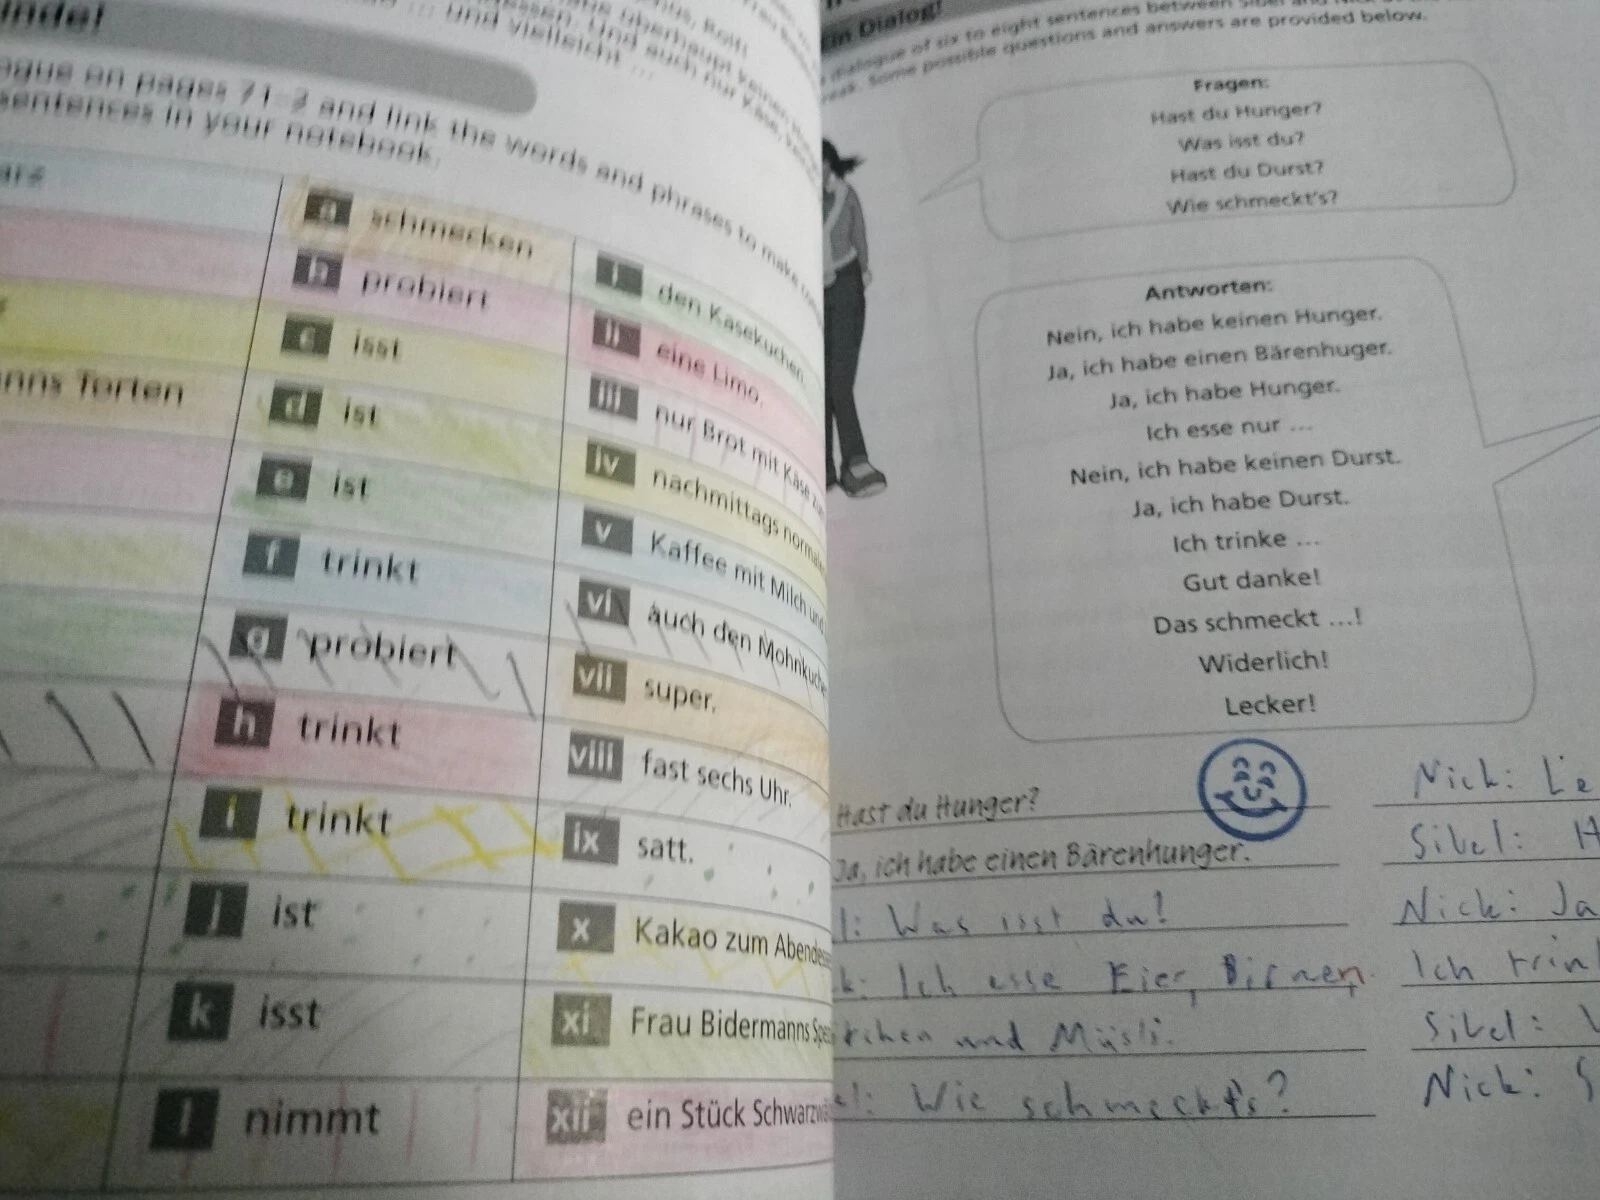 inde!
Rolf!
überhaupt keinen
essen. Und auch nur Käse,
... und vielleicht ...
ogue on pages 71–3 and link the words and phrases to make
sentences in your notebook.
arz
nns Torten
a schmecken
b probiert
c isst
d ist
e ist
f trinkt
g probiert
h trinkt
i trinkt
j ist
k isst
l nimmt
i den Käsekuchen.
ii eine Limo.
iii nur Brot mit Käse
iv nachmittags
v Kaffee mit Milch und
vi auch den Mohnkuchen
vii super.
viii fast sechs Uhr.
ix satt.
x Kakao zum Abendes
xi Frau Bidermanns Spe
xii ein Stück Schwarzwä
in Dialog!
dialogue of six to eight sentences between Sibel and Nick
reak. Some possible questions and answers are provided below.
Fragen:
Hast du Hunger?
Was isst du?
Hast du Durst?
Wie schmeckt's?
Antworten:
Nein, ich habe keinen Hunger.
Ja, ich habe einen Bärenhuger.
Ja, ich habe Hunger.
Ich esse nur ...
Nein, ich habe keinen Durst.
Ja, ich habe Durst.
Ich trinke ...
Gut danke!
Das schmeckt ...!
Widerlich!
Lecker!
Hast du Hunger?
Ja, ich habe einen Bärenhunger.
l: Was isst du?
k: Ich esse Eier, Birnen,
rchen und Müsli.
el: Wie schmeckt's?
Nick: Le
Sibel: H
Nick: Ja
Ich trin
Sibel:
Nick: S